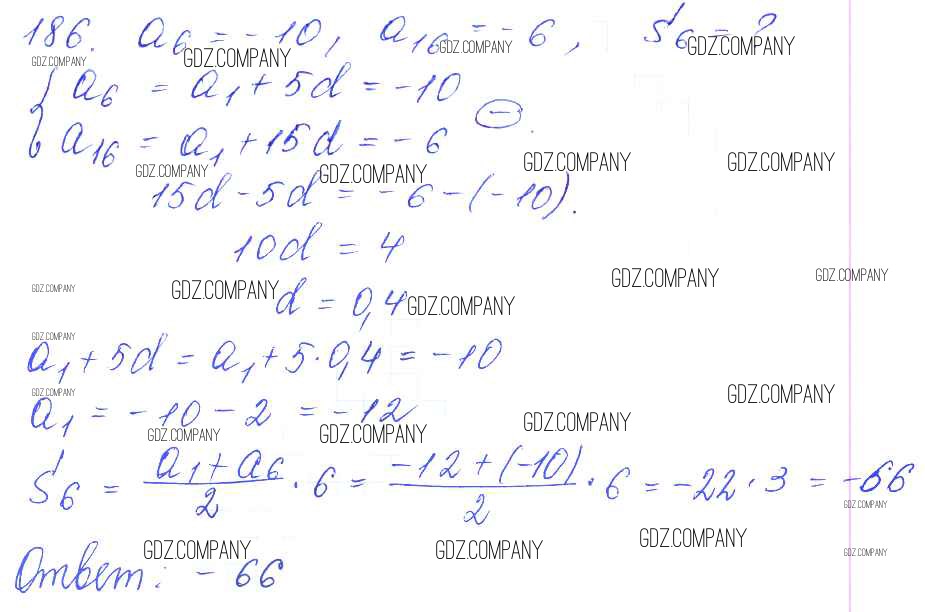 186. a₆ = -10, a₁₆ = -6, S₆ = ?
GDZ.COMPANY GDZ.COMPANY GDZ.COMPANY GDZ.COMPANY
{ a₆ = a₁ + 5d = -10
a₁₆ = a₁ + 15d = -6 (-)
GDZ.COMPANY GDZ.COMPANY GDZ.COMPANY GDZ.COMPANY
15d - 5d = -6 - (-10).
10d = 4
GDZ.COMPANY GDZ.COMPANY GDZ.COMPANY GDZ.COMPANY
d = 0,4 GDZ.COMPANY
GDZ.COMPANY
a₁ + 5d = a₁ + 5·0,4 = -10
GDZ.COMPANY GDZ.COMPANY
a₁ = -10 - 2 = -12
GDZ.COMPANY GDZ.COMPANY GDZ.COMPANY
S₆ = (a₁ + a₆)/2 · 6 = (-12 + (-10))/2 · 6 = -22 · 3 = -66
GDZ.COMPANY
GDZ.COMPANY GDZ.COMPANY GDZ.COMPANY GDZ.COMPANY
Ответ: -66